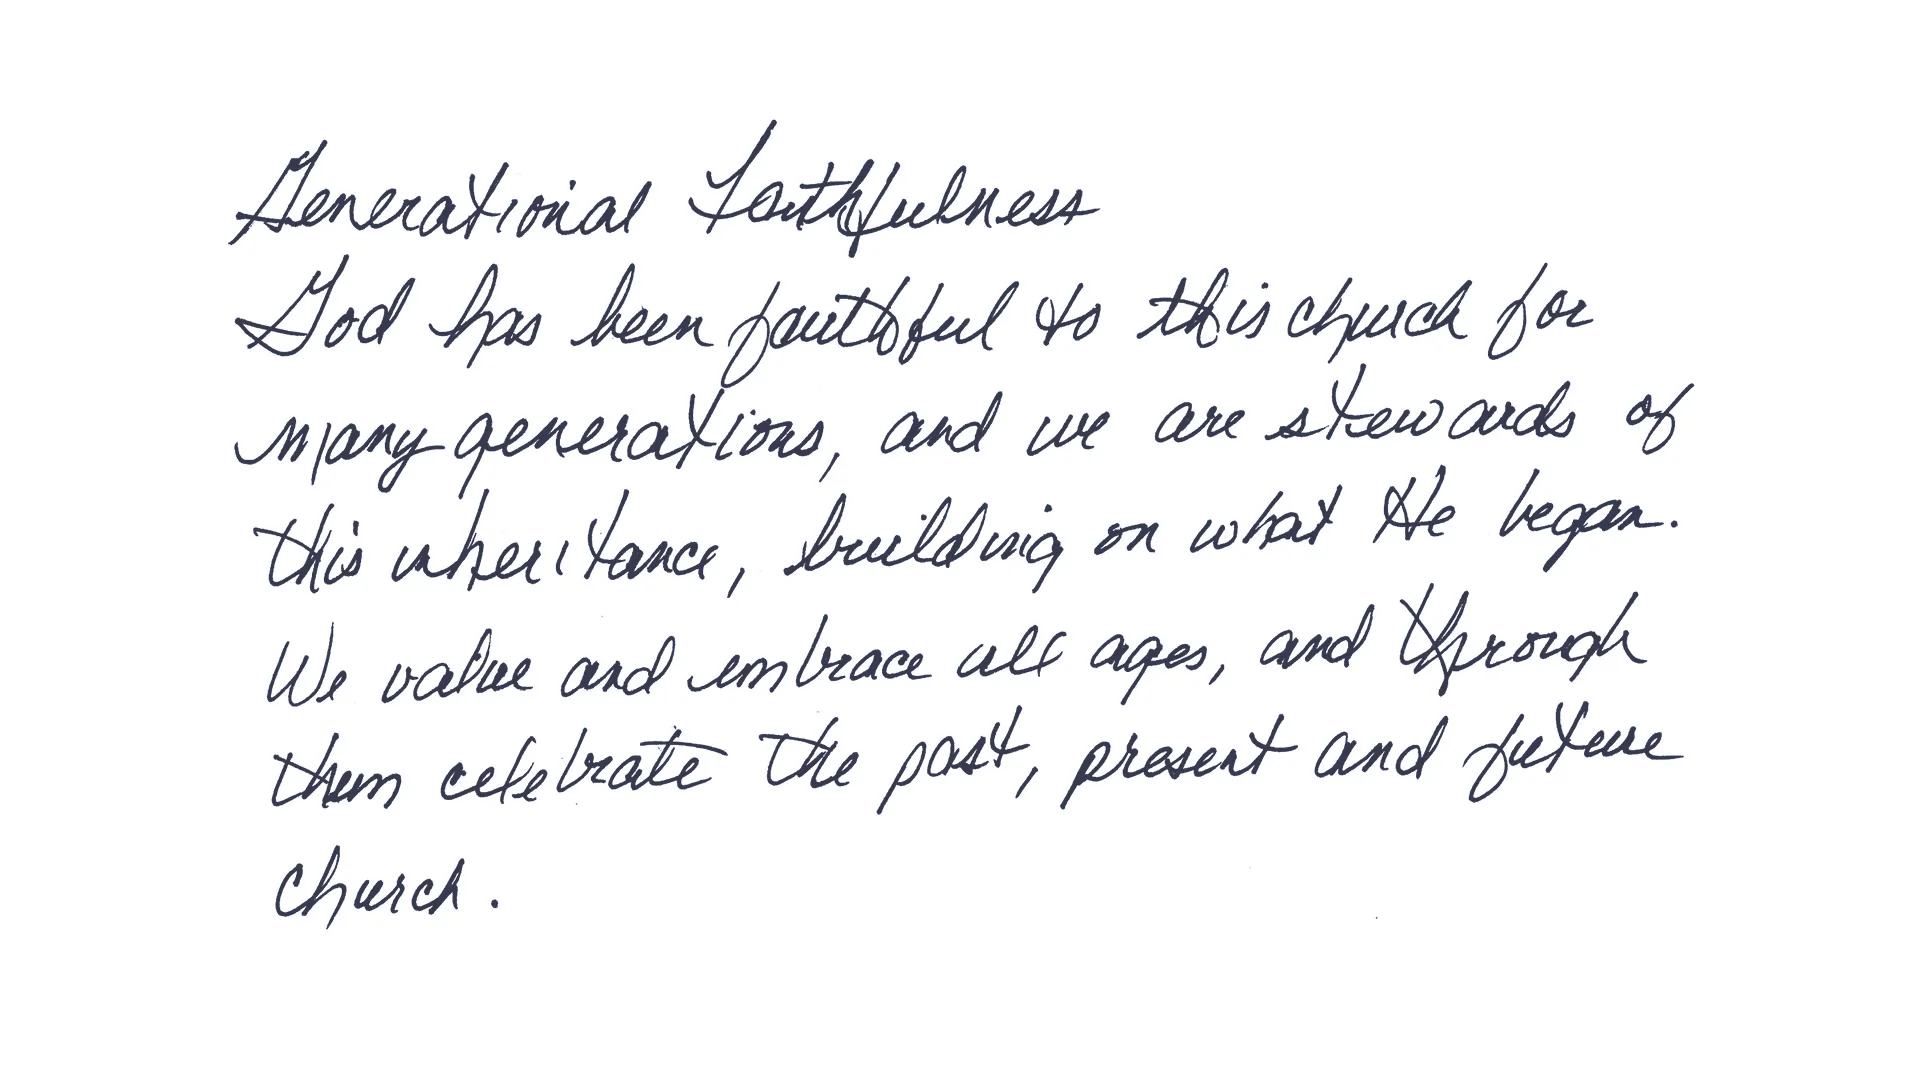 Generational Faithfulness
God has been faithful to this church for
many generations, and we are stewards of
this inheritance, building on what He began.
We value and embrace all ages, and through
them celebrate the past, present and future
church.